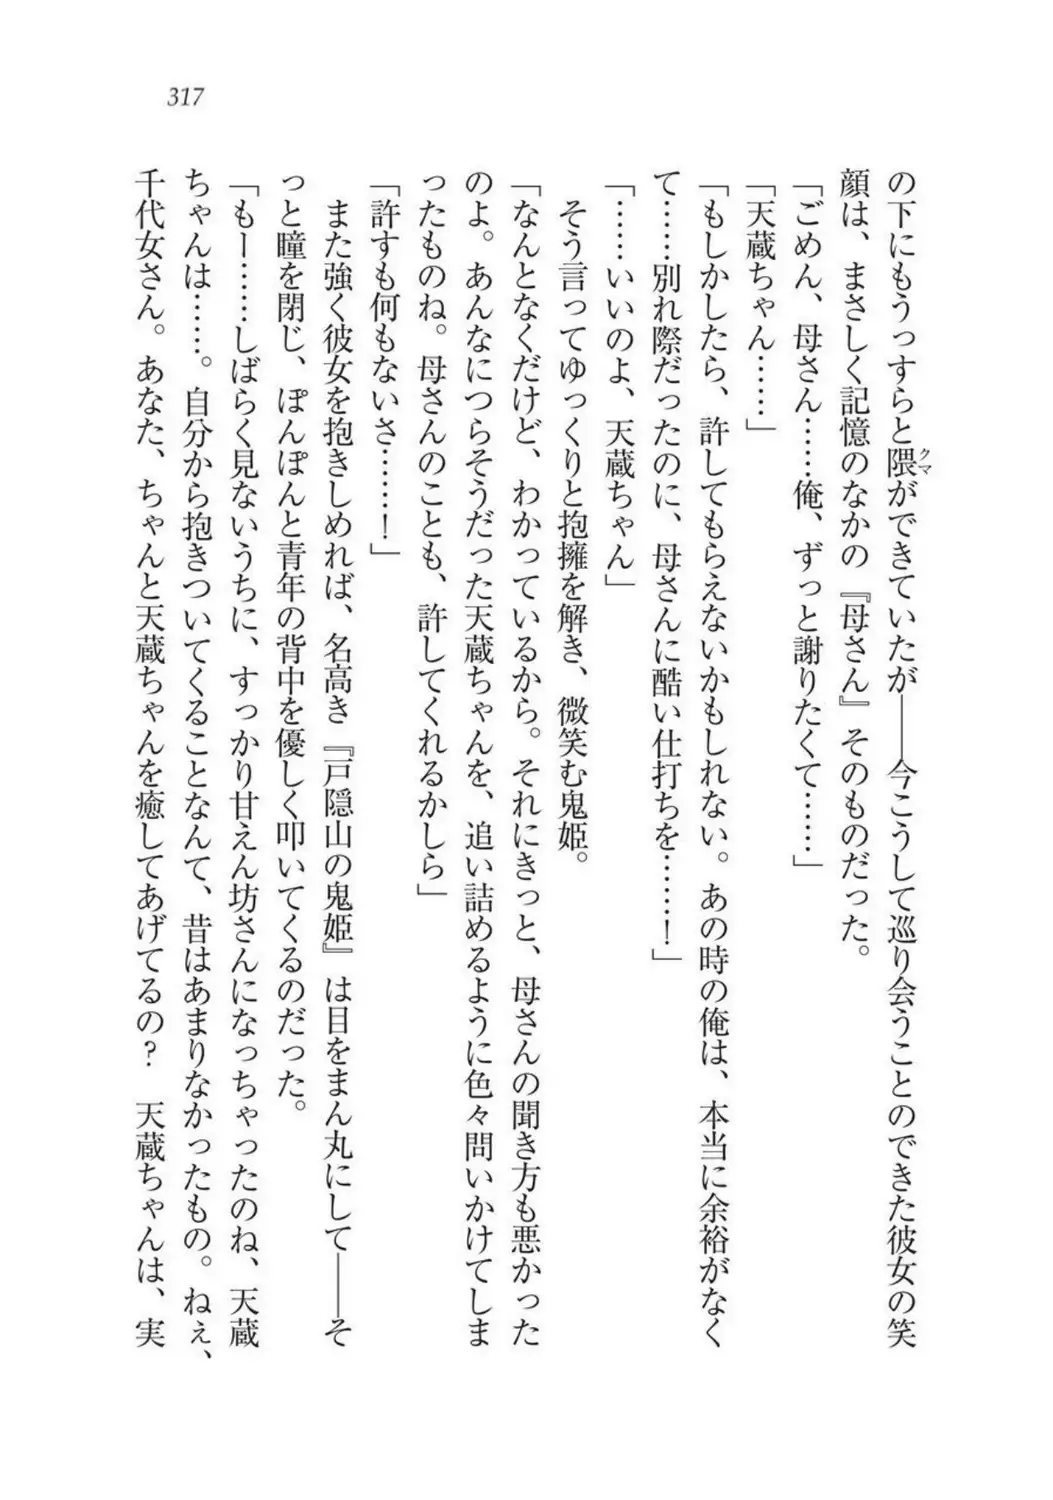 317
の下にもうっすらと隈ができていたが――今こうして巡り会うことのできた彼女の笑
クマ
顔は、まさしく記憶のなかの『母さん』そのものだった。
「ごめん、母さん……俺、ずっと謝りたくて……」
「天蔵ちゃん……」
「もしかしたら、許してもらえないかもしれない。あの時の俺は、本当に余裕がなく
て……別れ際だったのに、母さんに酷い仕打ちを……！」
「……いいのよ、天蔵ちゃん」
そう言ってゆっくりと抱擁を解き、微笑む鬼姫。
「なんとなくだけど、わかっているから。それにきっと、母さんの聞き方も悪かった
のよ。あんなにつらそうだった天蔵ちゃんを、追い詰めるように色々問いかけてしま
ったものね。母さんのことも、許してくれるかしら」
「許すも何もないさ……！」
また強く彼女を抱きしめれば、名高き『戸隠山の鬼姫』は目をまん丸にして――そ
っと瞳を閉じ、ぽんぽんと青年の背中を優しく叩いてくるのだった。
「もー……しばらく見ないうちに、すっかり甘えん坊さんになっちゃったのね、天蔵
ちゃんは……。自分から抱きついてくることなんて、昔はあまりなかったもの。ねぇ、
千代女さん。あなた、ちゃんと天蔵ちゃんを癒してあげてるの？　天蔵ちゃんは、実